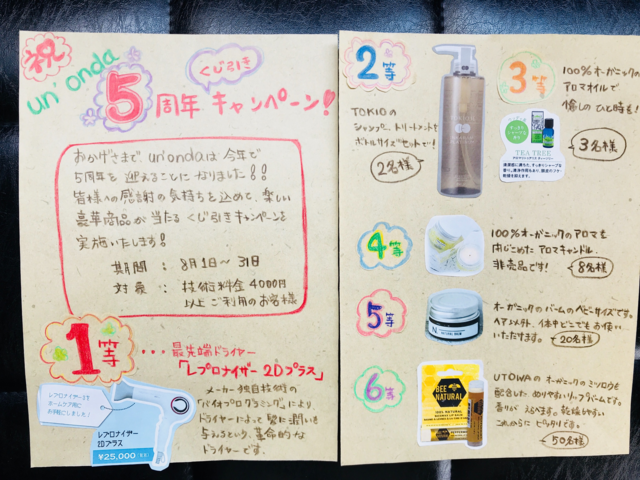 祝
un'onda
くじ引き
5周年 キャンペーン!
おかげさまで、un'ondaは今年で
5周年を迎えることになりました!!
皆様への感謝の気持ちを込めて、楽しい
豪華商品が当たるくじ引きキャンペーンを
実施いたします!
期間 : 8月1日〜31日
対象 : 技術料金4000円
以上ご利用のお客様
1等
・・・最先端ドライヤー
「レプロナイザー2Dプラス」
メーカー独自技術の
"バイオプログラミング"により
ドライヤーによって髪に潤いを
与えるという、革命的な
ドライヤーです。
レプロナイザーを
お手軽にしました!
レプロナイザー
2Dプラス
¥25,000
2等
TOKIOの
シャンプー、トリートメントを
ボトルサイズセットで!
2名様
3等
100%オーガニックの
アロマオイルで
癒しのひと時も!
TEA TREE
3名様
4等
100%オーガニックのアロマも
閉じこめたアロマキャンドル。
非売品です!
8名様
5等
オーガニックのバームのベビーサイズです。
ヘアメイク、体中どこでもお使い
いただけます。
20名様
6等
BEE
NATURAL
UTOWAのオーガニックのミツロウも
配合した、ぬりやすいリップバームです。
香りがえらべます。乾燥しやすい
これからにピッタリです。
50名様